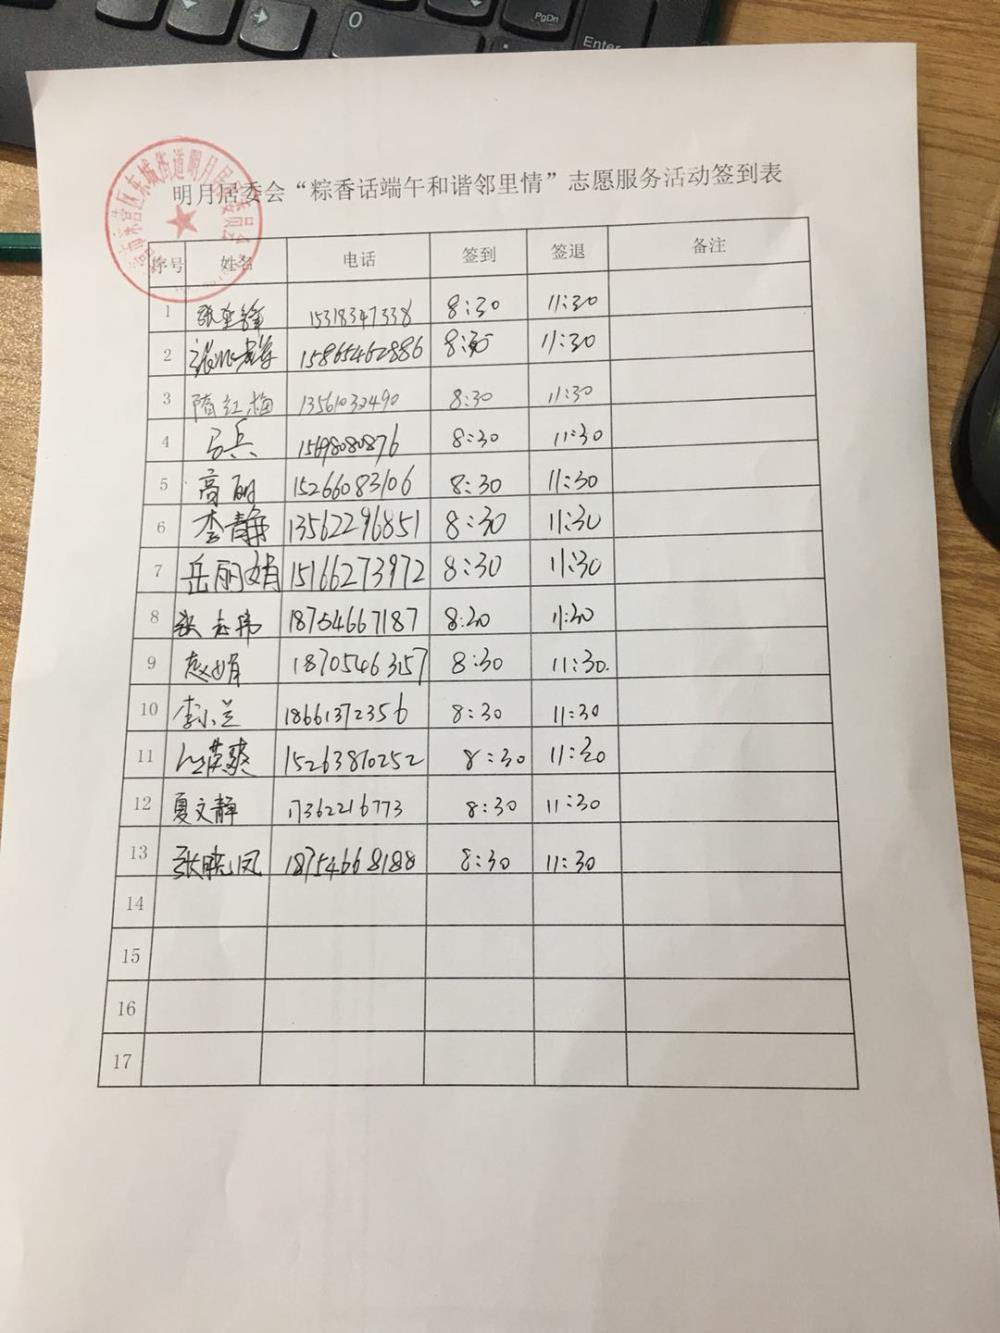 PgDn
0
Enter
明月居委会“粽香话端午和谐邻里情”志愿服务活动签到表
序号 姓名 电话 签到 签退 备注
1 15318347338 8:30 11:30
2 15865462886 8:30 11:30
3 隋红梅 13561032490 8:30 11:30
4 马兵 15698080876 8:30 11:30
5 高丽 15266083106 8:30 11:30
6 李静 13562296851 8:30 11:30
7 岳丽娟 15166273972 8:30 11:30
8 张志伟 18754667187 8:30 11:30
9 赵娟 18705463157 8:30 11:30.
10 李小兰 18661372356 8:30 11:30
11 15263810252 8:30 11:30
12 夏文静 17362216773 8:30 11:30
13 张晓凤 18754668188 8:30 11:30
14
15
16
17